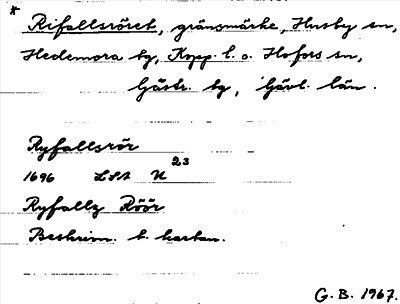 * Rifallsröret, gränsmärke, Husby sn,
Hedemora tg, Kopp. l. o. Hofors sn,
Gästr. tg, Gävl. län.
Ryfallsrör
1696 LSA N 23
Ryfallz Röör
Beskrivn. t. kartan.
G. B. 1967.